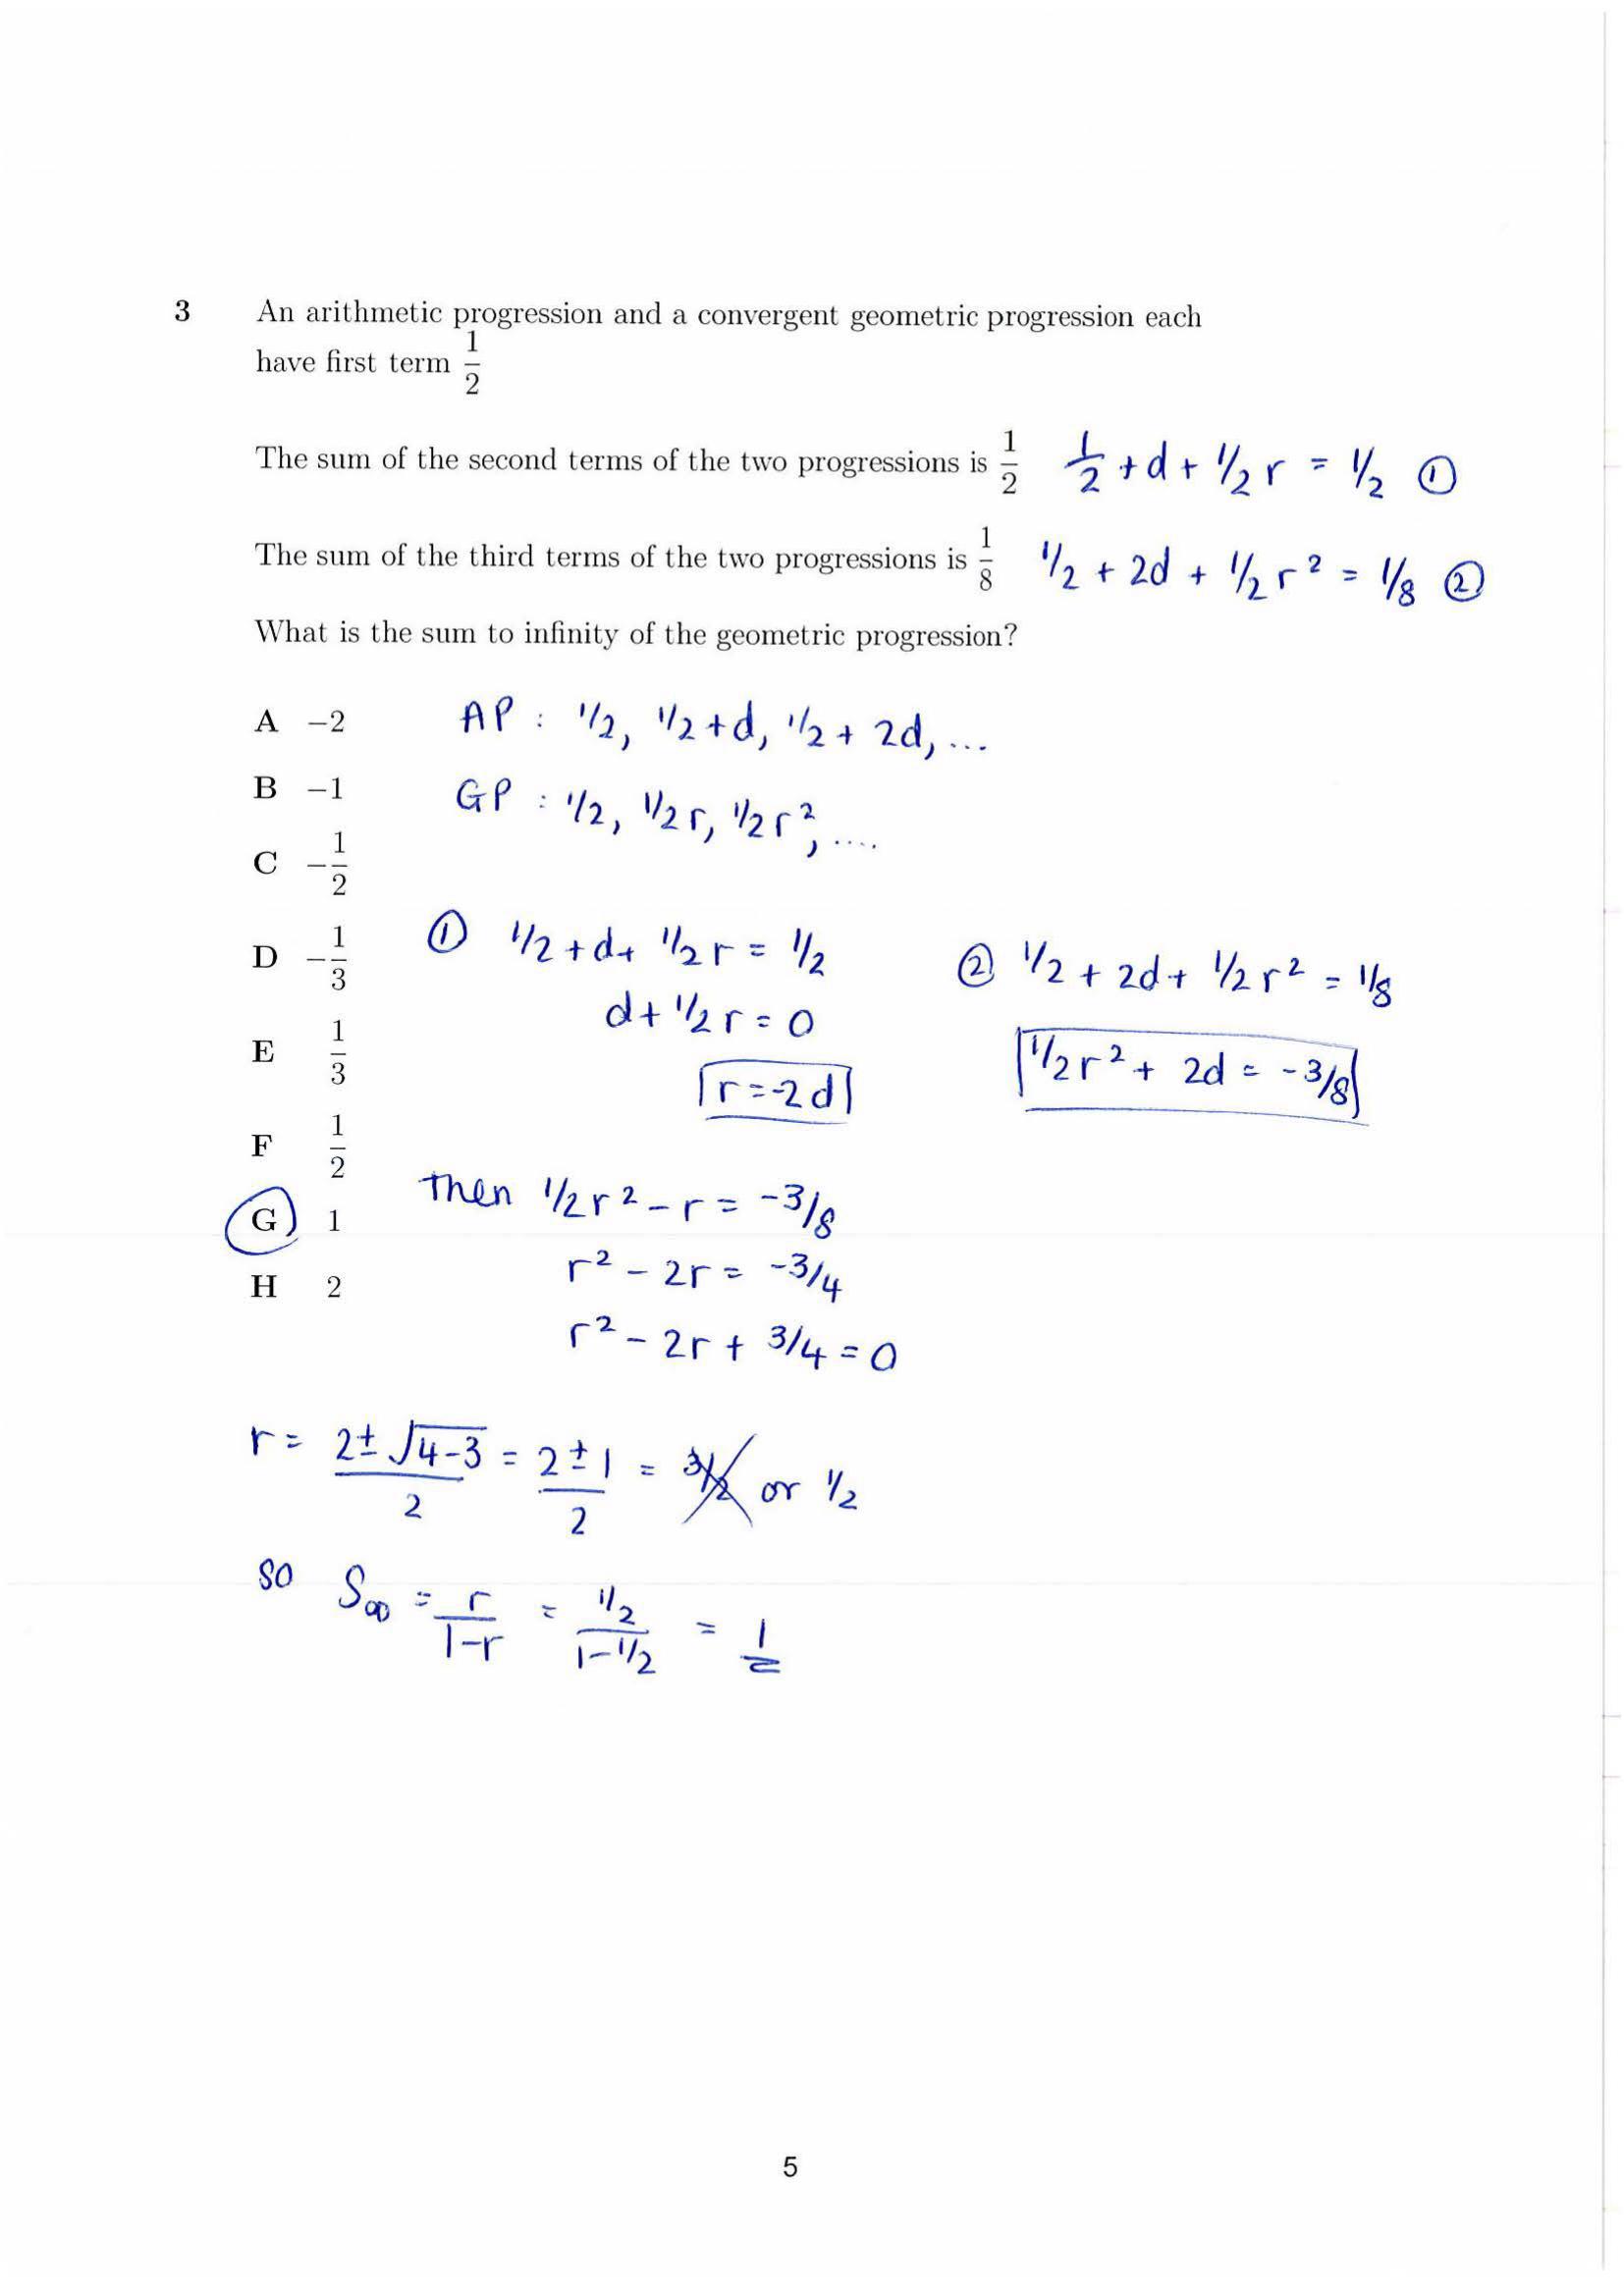 3 An arithmetic progression and a convergent geometric progression each
have first term 1/2
The sum of the second terms of the two progressions is 1/2 1/2 + d + 1/2 r = 1/2 ①
The sum of the third terms of the two progressions is 1/8 1/2 + 2d + 1/2 r² = 1/8 ②
What is the sum to infinity of the geometric progression?
A −2 AP : 1/2, 1/2 + d, 1/2 + 2d, ...
B −1 GP : 1/2, 1/2 r, 1/2 r², ....
C −1/2
D −1/3 ① 1/2 + d + 1/2 r = 1/2 ② 1/2 + 2d + 1/2 r² = 1/8
d + 1/2 r = 0
E 1/3 r = -2d 1/2 r² + 2d = -3/8
F 1/2
G 1 Then 1/2 r² - r = -3/8
H 2 r² - 2r = -3/4
r² - 2r + 3/4 = 0
r = (2 ± √(4-3))/2 = (2 ± 1)/2 = 3/2 or 1/2
so S∞ = r/(1-r) = (1/2)/(1-1/2) = 1
5